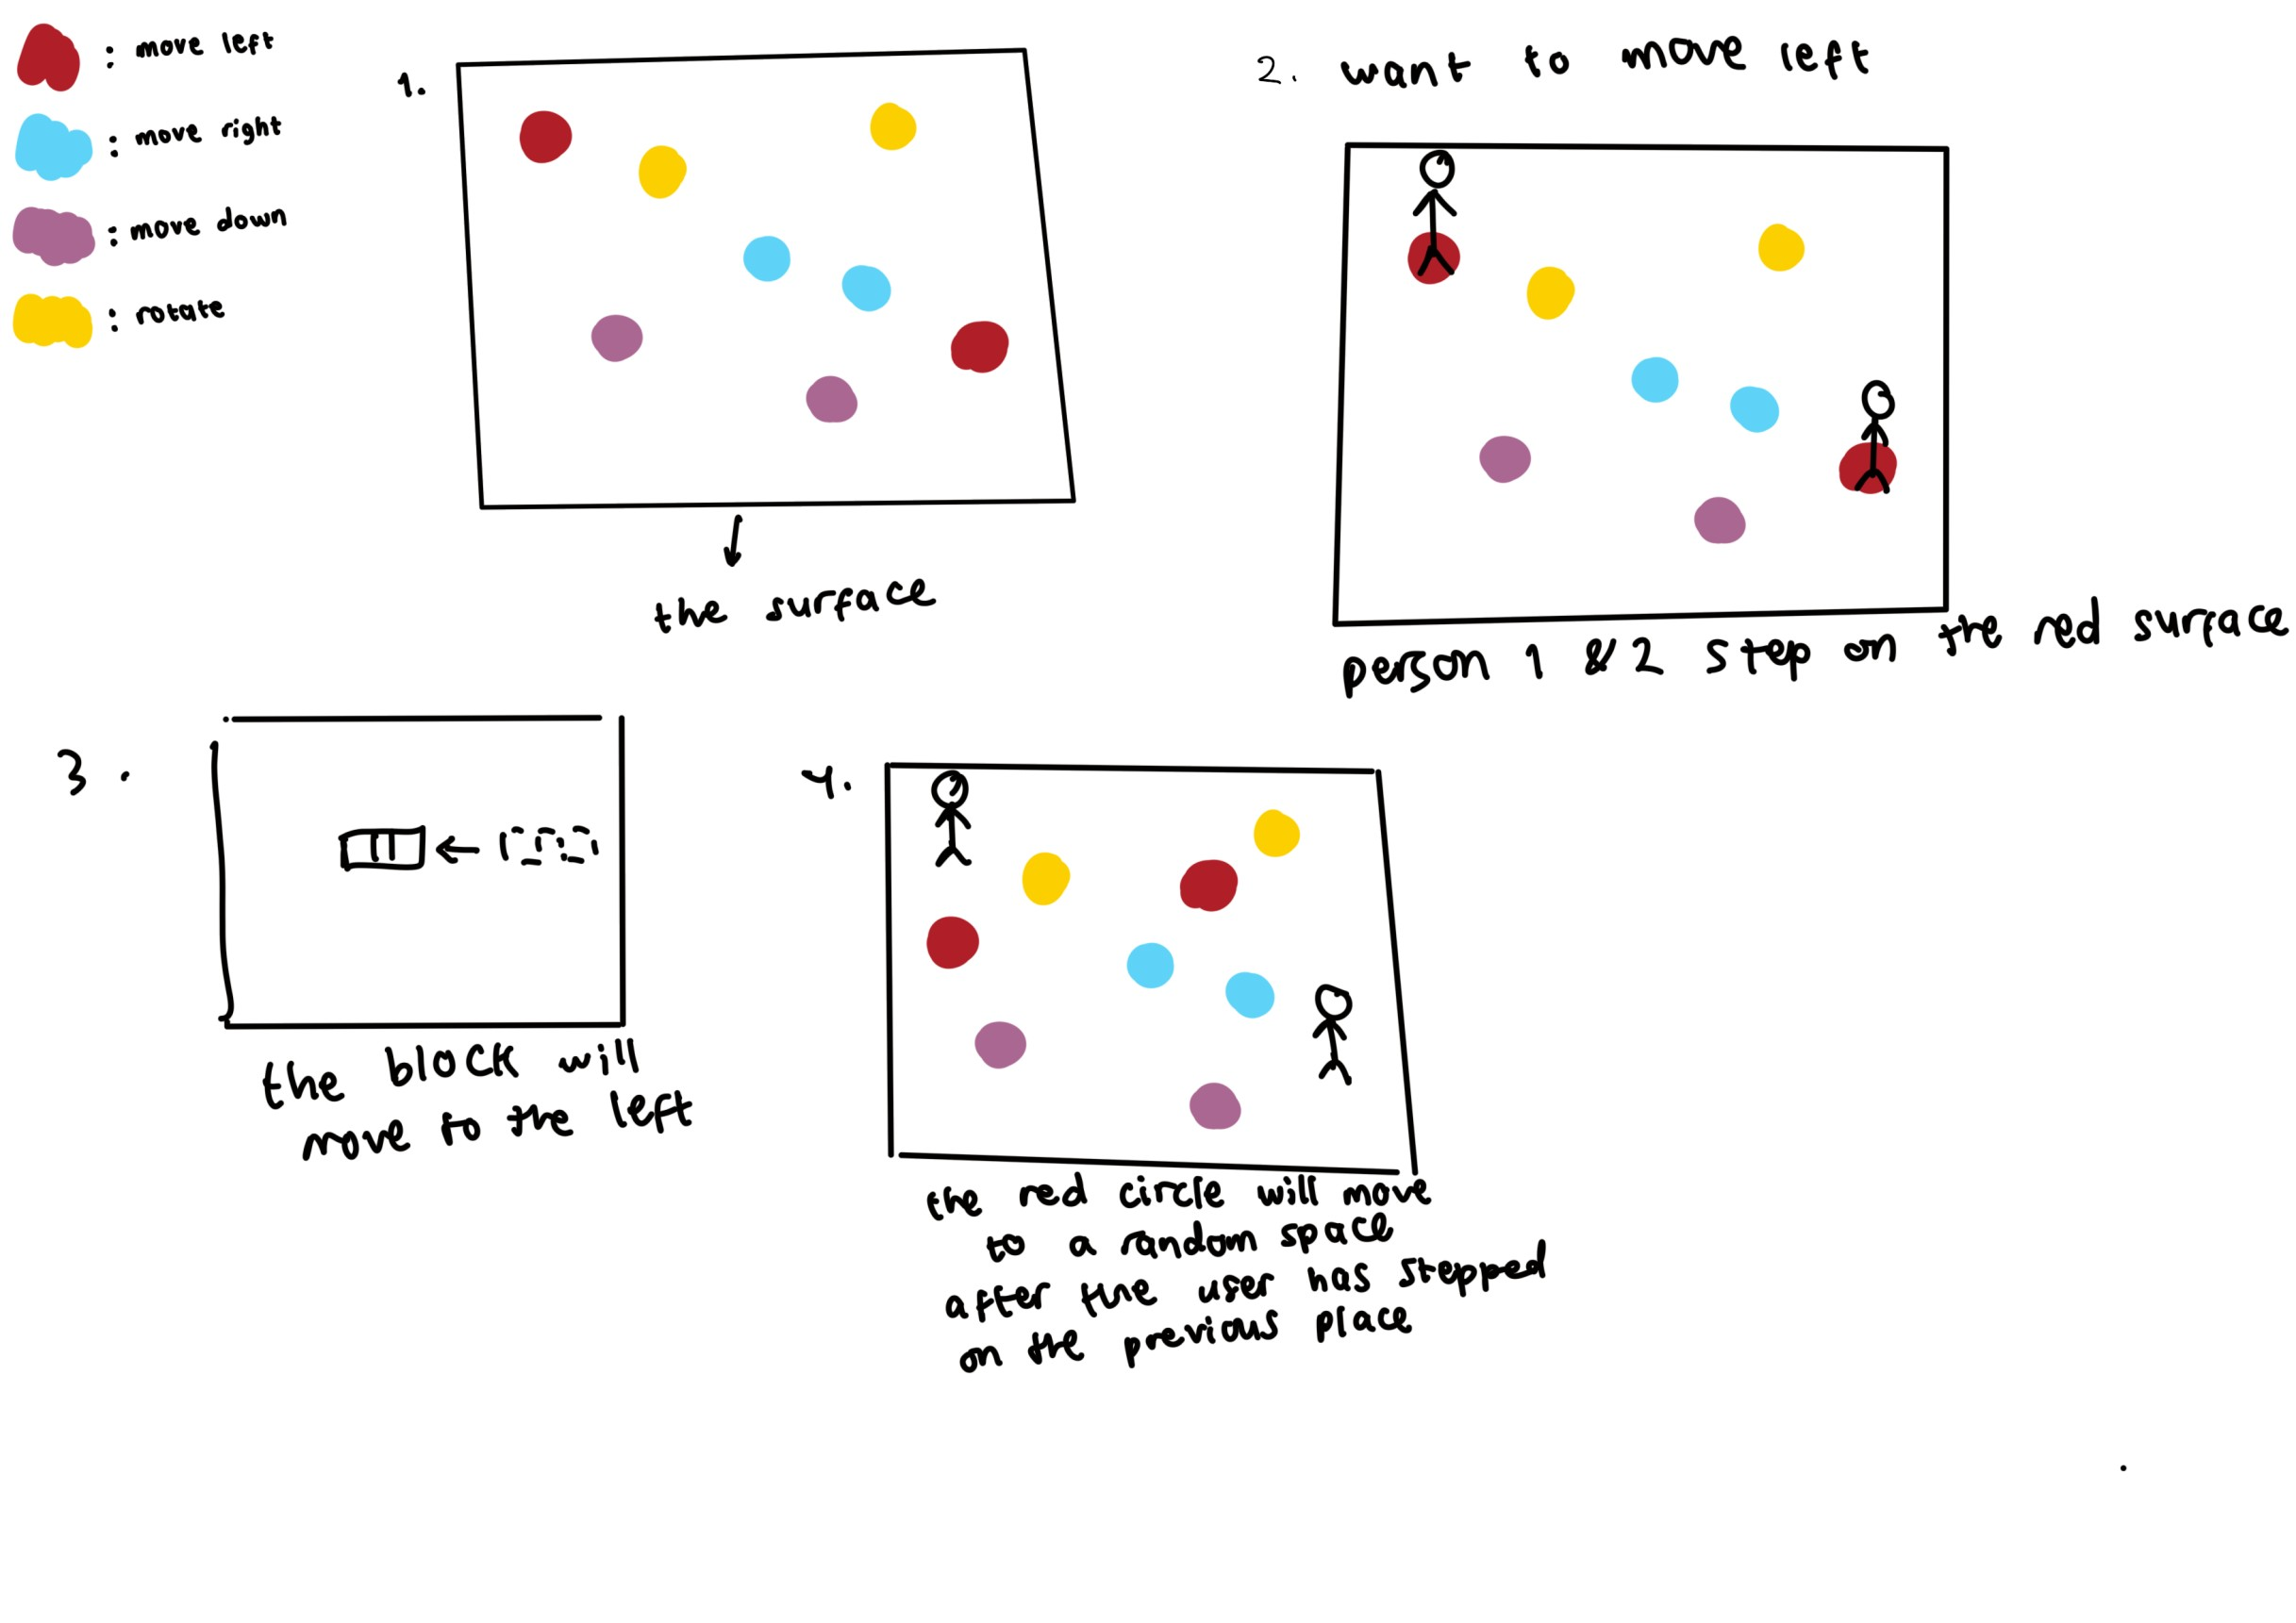 : move left
: move right
: move down
: rotate
1.
the surface
2. want to move left
person 1 & 2 step on the red surface
3.
the block will
move to the left
4.
the red circle will move
to a random space
after the user has stepped
on the previous place